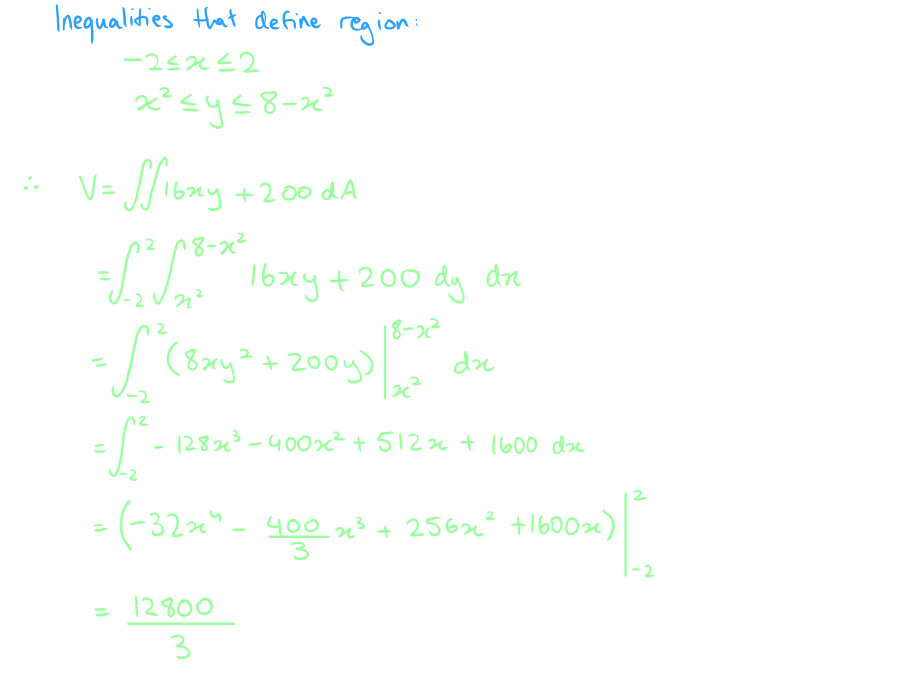 Inequalities that define region:
-2 ≤ x ≤ 2
x² ≤ y ≤ 8-x²
∴ V = ∬ 16xy + 200 dA
= ∫_{-2}^{2} ∫_{x²}^{8-x²} 16xy + 200 dy dx
= ∫_{-2}^{2} (8xy² + 200y) |_{x²}^{8-x²} dx
= ∫_{-2}^{2} - 128x³ - 400x² + 512x + 1600 dx
= (-32x⁴ - 400/3 x³ + 256x² + 1600x) |_{-2}^{2}
= 12800/3